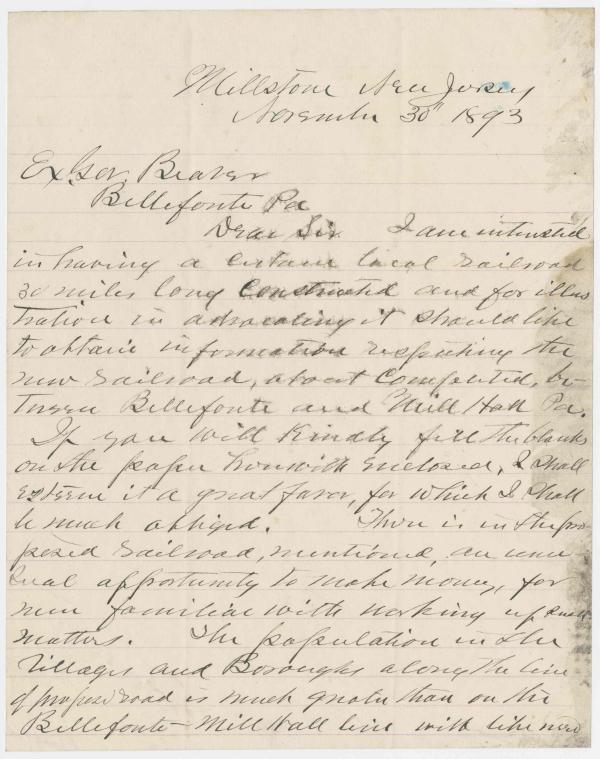 Millstone New Jersey
November 30th 1893
Ex Gov. Beaver
Bellefonte Pa
Dear Sir I am interested
in having a certain local railroad
30 miles long constructed and for illus
tration in advocating it should like
to obtain information respecting the
new railroad, about completed, be-
tween Bellefonte and Mill Hall Pa.
If you will kindly fill the blanks
on the paper herewith enclosed, I shall
esteem it a great favor, for which I shall
be much obliged. There is in the pro-
posed railroad, mentioned, an unu
sual opportunity to make money, for
men familiar with working up such
matters. The population in the
Villages and Boroughs along the line
of proposed road is much greater than on the
Bellefonte - Mill Hall line with like